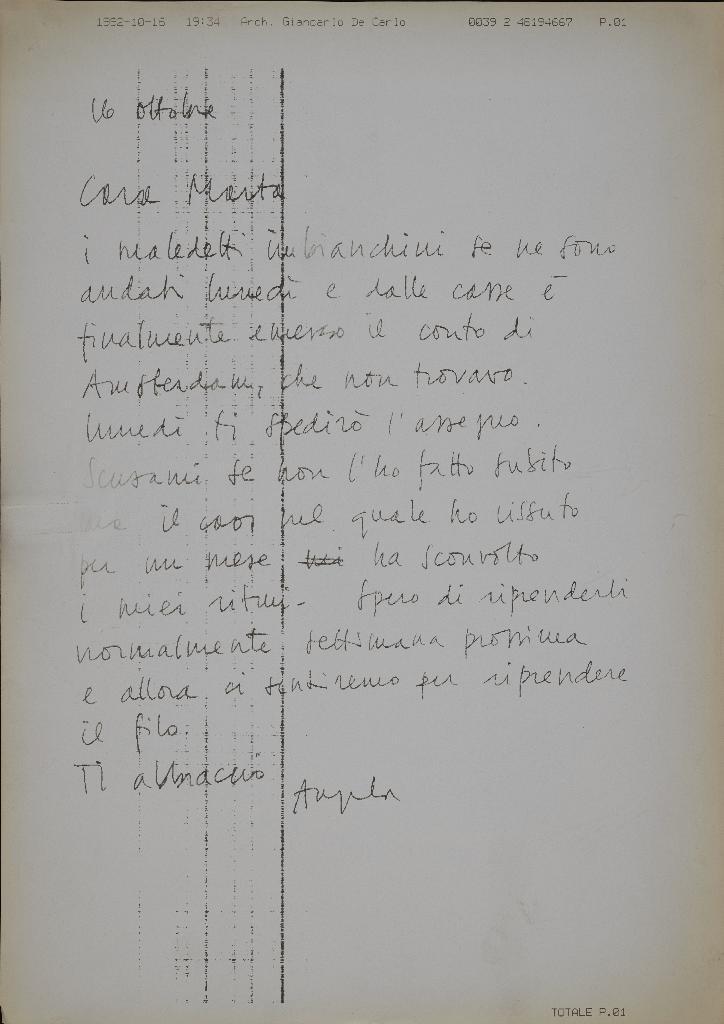 1992-10-16 19:34 Arch. Giancarlo De Carlo 0039 2 46194667 P.01
16 ottobre
Cara Marta
i maledetti imbianchini se ne sono
andati lunedì e dalle casse è
finalmente emerso il conto di
Amsterdam, che non trovavo.
lunedì ti spedirò l'assegno.
Scusami se non l'ho fatto subito
ma il caos nel quale ho vissuto
per un mese ha sconvolto
i miei ritmi. Spero di riprenderli
normalmente settimana prossima
e allora ci sentiremo per riprendere
il filo.
Ti abbraccio
Angela
TOTALE P.01